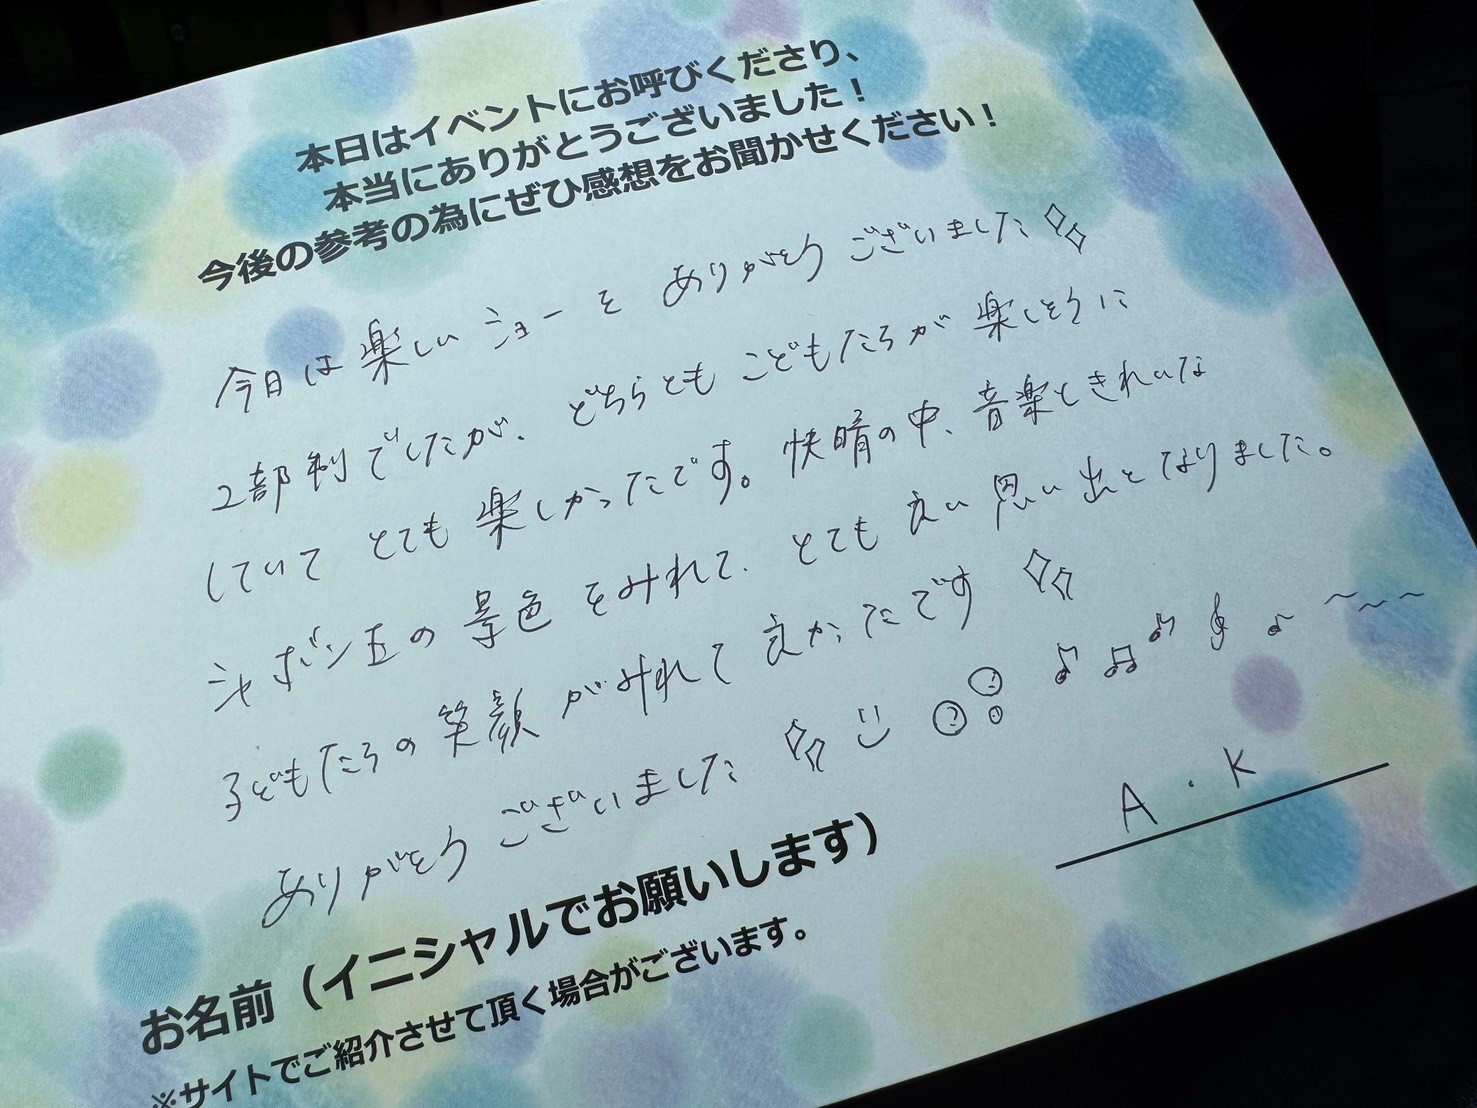 本日はイベントにお呼びくださり、
本当にありがとうございました！
今後の参考の為にぜひ感想をお聞かせください！
今日は楽しいショーを ありがとう ございました
2部制でしたが、どちらとも こどもたちが 楽しそうに
していて とても 楽しかったです。快晴の中、音楽ときれいな
シャボン玉の 景色 をみれて、とても 良い 思い出となりました。
子どもたちの 笑顔 がみれて 良かったです
ありがとう ございました
A・K
お名前（イニシャルでお願いします）
※サイトでご紹介させて頂く場合がございます。